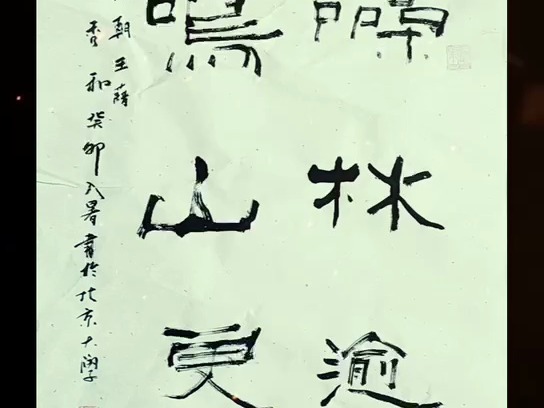 噪林逾
鳴山更
朝王籍
和癸卯大暑書於北京大學